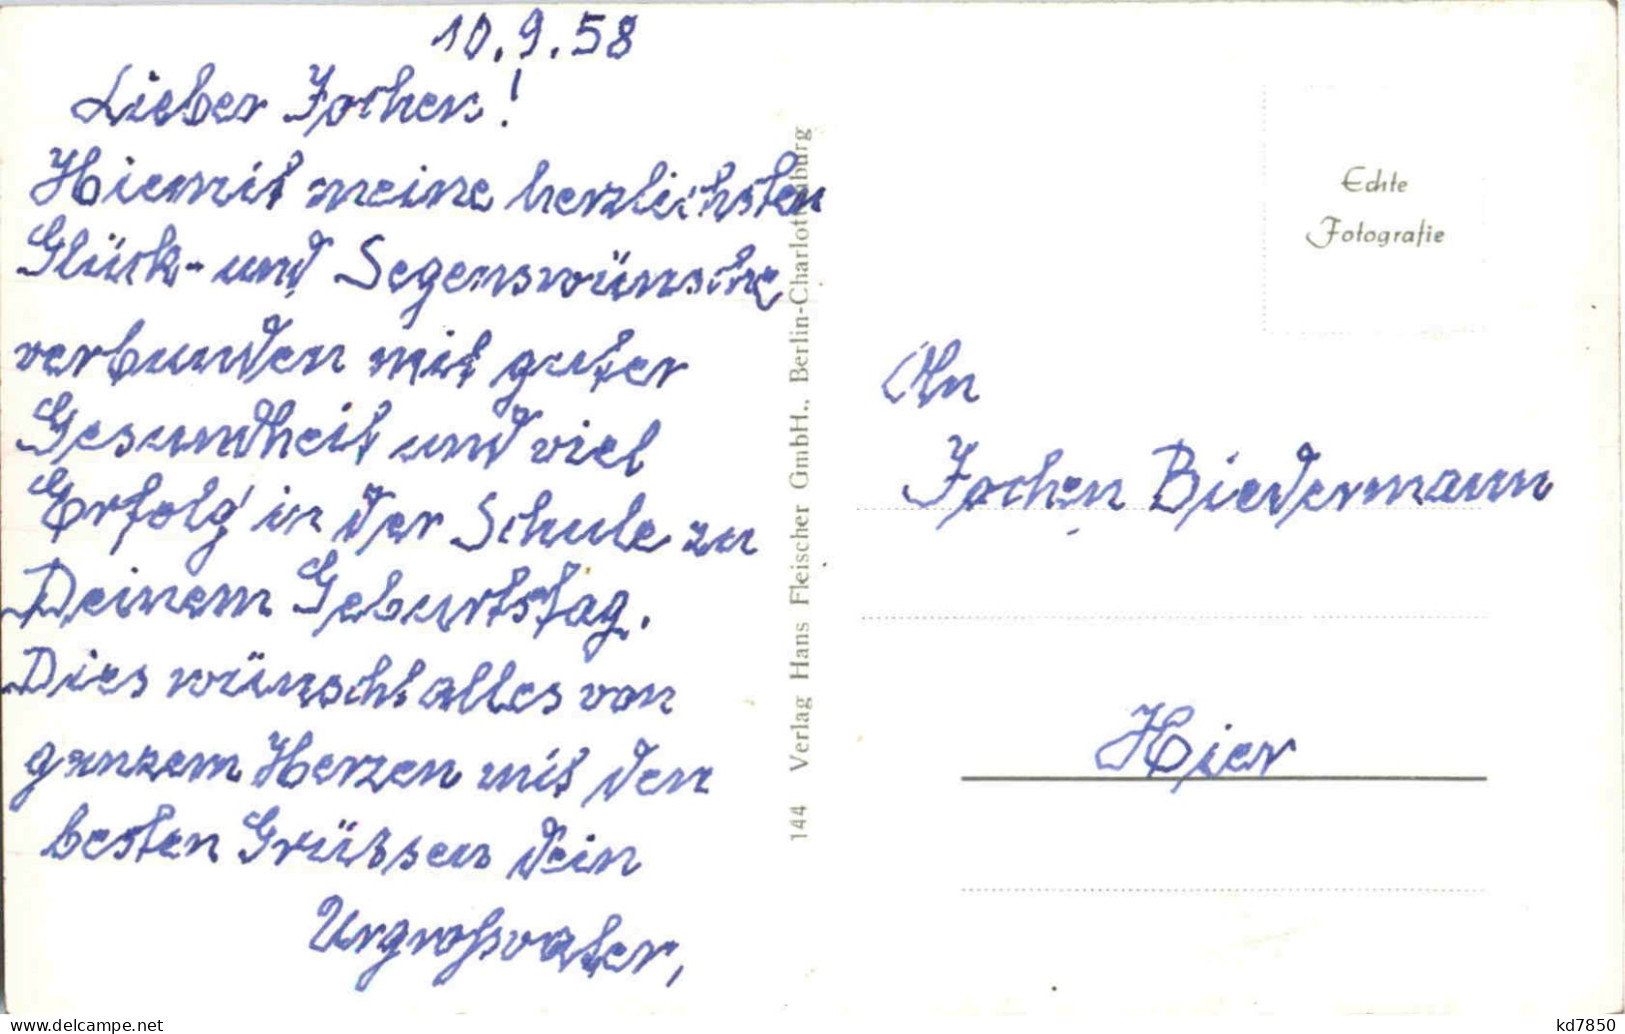 10.9.58
Lieber Jochen!
Hiemit meine herzlichsten
Glück- und Segenswünsche
verbunden mit guter
Gesundheit und viel
Erfolg in der Schule zu
Deinem Geburtstag.
Dies wünscht alles von
ganzem Herzen mit den
besten Grüssen dein
Urgroßvater,
144 Verlag Hans Fleischer GmbH., Berlin-Charlottenburg
Echte
Fotografie
An
Jochen Biedermann
Hier
kd7850